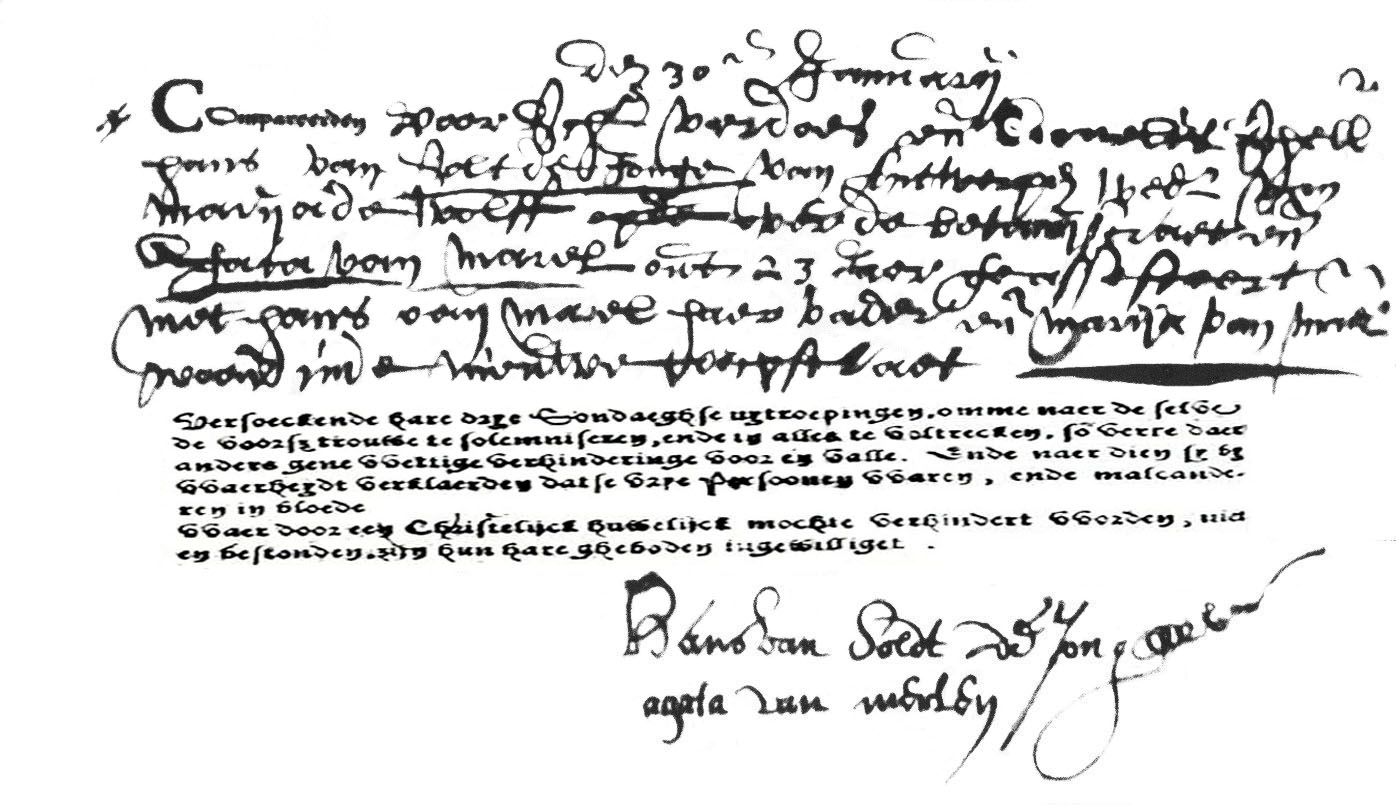 den 30en Januarij
Compareerden voor Verdoes en Cornelis
hans van Solt de Jonge van Antwerpen wedr van
marija de wolff de
Agata van Marel out 23 Jaer geassisteert
met hans van Marel haer vader en marija van
inde nieuwe
Versoeckende hare drye Sondaeghse uytroepingen, omme naer de selve
de voorsz trouwe te solemniseren, ende in alles te voltrecken, so verre daer
anders gene vvettige verhinderinge voor en valle. Ende naer dien sy by
vvaerheydt verklaerden dat se vrye Persoonen vvaren, ende malcande-
ren in bloede
vvaer door een Christelijck huwelijck mochte verhindert vvorden, niet
en bestonden, zijn hun hare gheboden ingewilliget.
Hans van Soldt de Jonge
agata van merlen